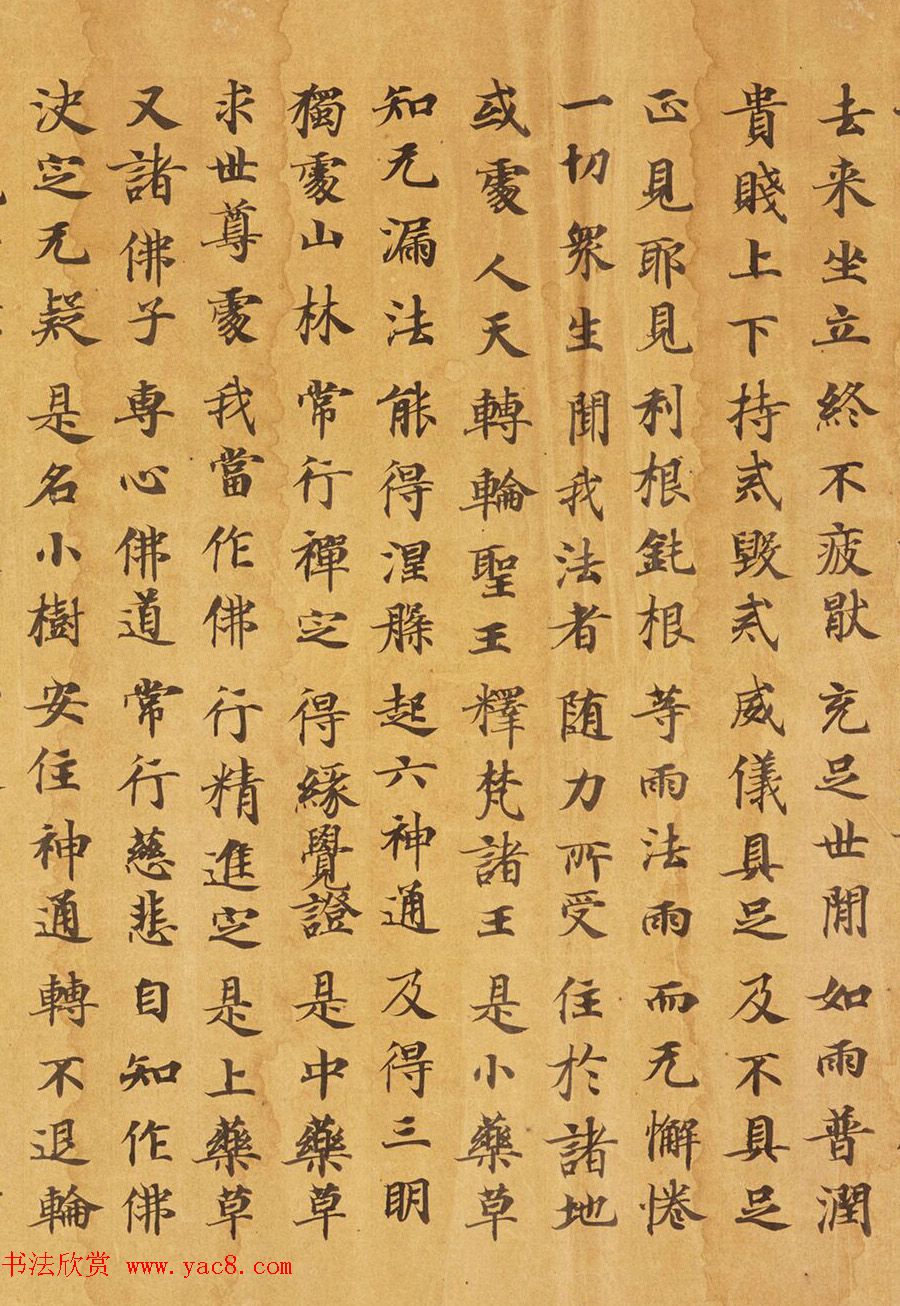 去来坐立終不疲猒充足世間如雨普潤
貴賤上下持戒毀戒威儀具足及不具足
正見耶見利根鈍根等雨法雨而无懈惓
一切衆生聞我法者随力所受住於諸地
或處人天轉輪聖王釋梵諸王是小藥草
知无漏法能得涅槃起六神通及得三明
獨處山林常行禪定得緣覺證是中藥草
求世尊處我當作佛行精進定是上藥草
又諸佛子專心佛道常行慈悲自知作佛
決定无疑是名小樹安住神通轉不退輪
书法欣赏 www.yac8.com